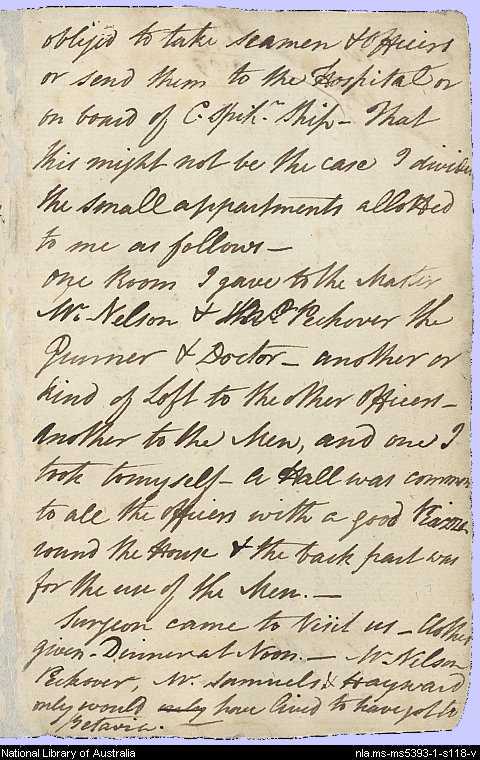 oblij'd to take seamen & officers
or send them to the Hospital or
on board of C. Spik.r Ship – That
this might not be the case I divided
the small appartments allotted
to me as follows –
one Room I gave to the Master
Mr. Nelson & Peckover the
Gunner & Doctor – another or
kind of Loft to the other officers –
Another to the Men, and one I
took to myself – a Hall was common
to all the officers with a good Piazza
round the House & the back part was
for the use of the Men. –
Surgeon came to Visit us – Clothes
given – Dinner at Noon. – Mr. Nelson
Peckover, Mr. Samuels & Hayward
only would only have lived to have got to
Betavia.
National Library of Australia
nla.ms-ms5393-1-s118-v